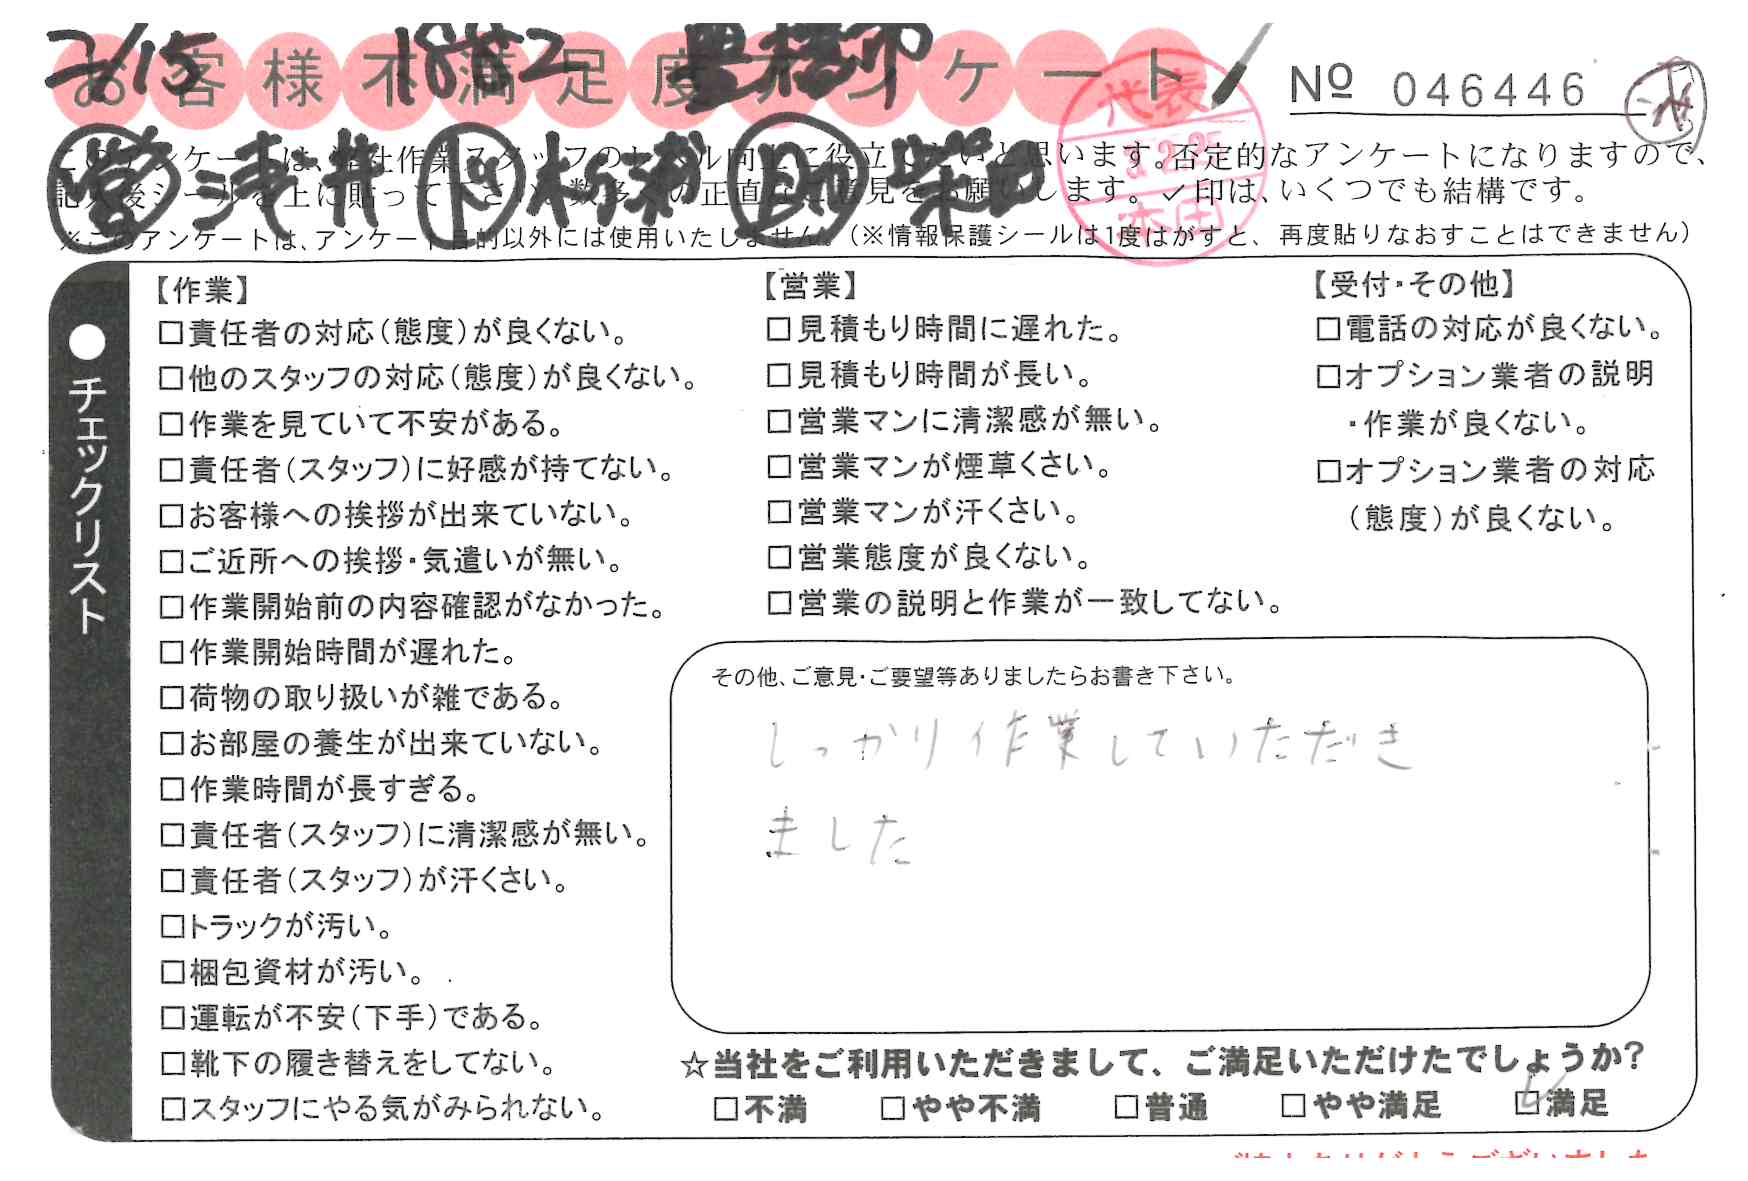 2/15 1882 豊橋市
お客様不満足度アンケート
代表
本田
Nº 046446
営 浅井 下 杉浦 助 柴田
このアンケートは、当社作業スタッフのレベル向上に役立てたいと思います。否定的なアンケートになりますので、
記入後シールを上に貼って下さい。数多くの正直なご意見をお願いします。✓印は、いくつでも結構です。
※このアンケートは、アンケート目的以外には使用いたしません。(※情報保護シールは1度はがすと、再度貼りなおすことはできません)
●チェックリスト
【作業】
□責任者の対応(態度)が良くない。
□他のスタッフの対応(態度)が良くない。
□作業を見ていて不安がある。
□責任者(スタッフ)に好感が持てない。
□お客様への挨拶が出来ていない。
□ご近所への挨拶・気遣いが無い。
□作業開始前の内容確認がなかった。
□作業開始時間が遅れた。
□荷物の取り扱いが雑である。
□お部屋の養生が出来ていない。
□作業時間が長すぎる。
□責任者(スタッフ)に清潔感が無い。
□責任者(スタッフ)が汗くさい。
□トラックが汚い。
□梱包資材が汚い。
□運転が不安(下手)である。
□靴下の履き替えをしてない。
□スタッフにやる気がみられない。
【営業】
□見積もり時間に遅れた。
□見積もり時間が長い。
□営業マンに清潔感が無い。
□営業マンが煙草くさい。
□営業マンが汗くさい。
□営業態度が良くない。
□営業の説明と作業が一致してない。
【受付・その他】
□電話の対応が良くない。
□オプション業者の説明
・作業が良くない。
□オプション業者の対応
(態度)が良くない。
その他、ご意見・ご要望等ありましたらお書き下さい。
しっかり作業していただき
ました
☆当社をご利用いただきまして、ご満足いただけたでしょうか?
□不満 □やや不満 □普通 □やや満足 ☑満足